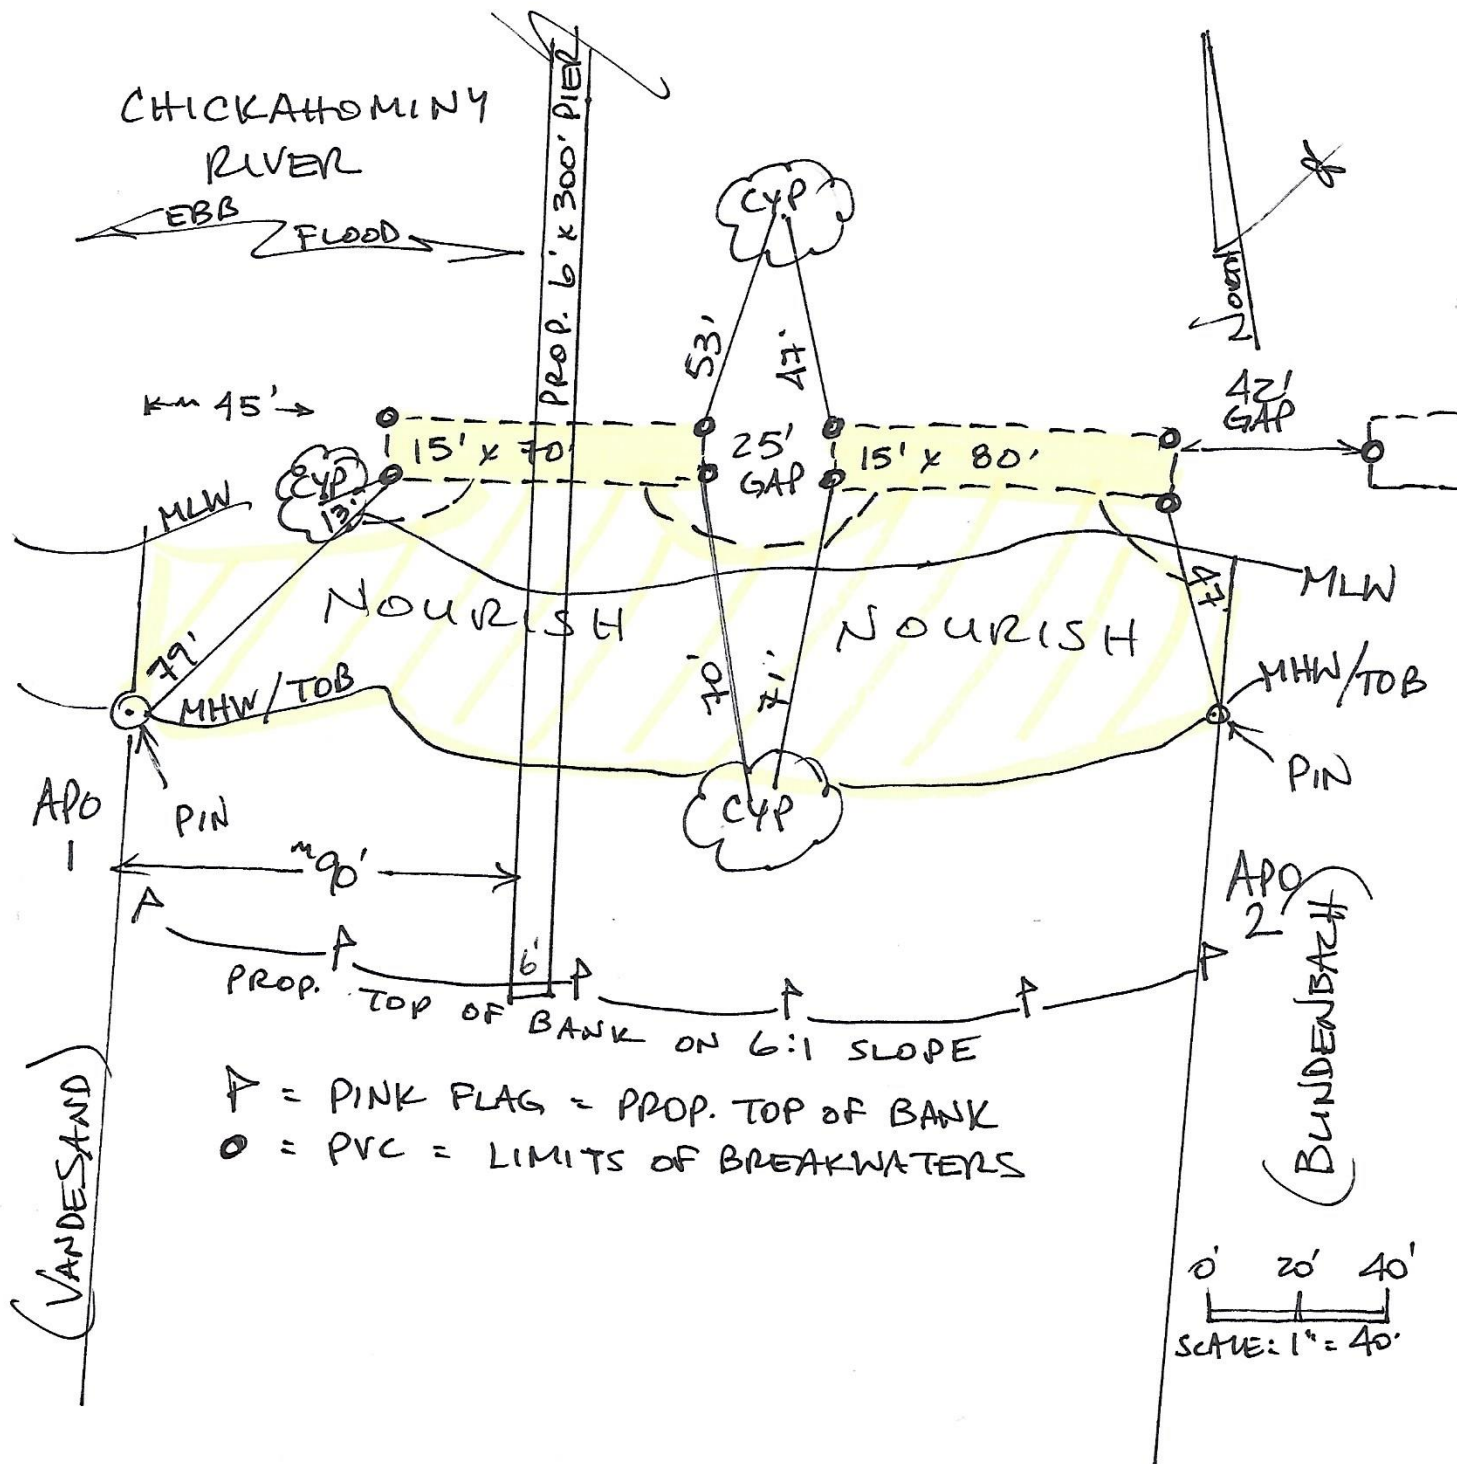 CHICKAHOMINY
RIVER
EBB
FLOOD
PROP. 6' x 300' PIER
CYP
NORTH
53'
47'
45'
42'
GAP
15' x 70'
25'
GAP
15' x 80'
CYP
13'
MLW
MLW
NOURISH
NOURISH
47'
79'
70'
71'
MHW/TOB
MHW/TOB
PIN
PIN
CYP
APO
1
~90'
APO
2
6'
PROP. TOP OF BANK ON 6:1 SLOPE
P = PINK FLAG = PROP. TOP OF BANK
o = PVC = LIMITS OF BREAKWATERS
(VANDESAND)
(BLINDENBACH)
0' 20' 40'
SCALE: 1" = 40'